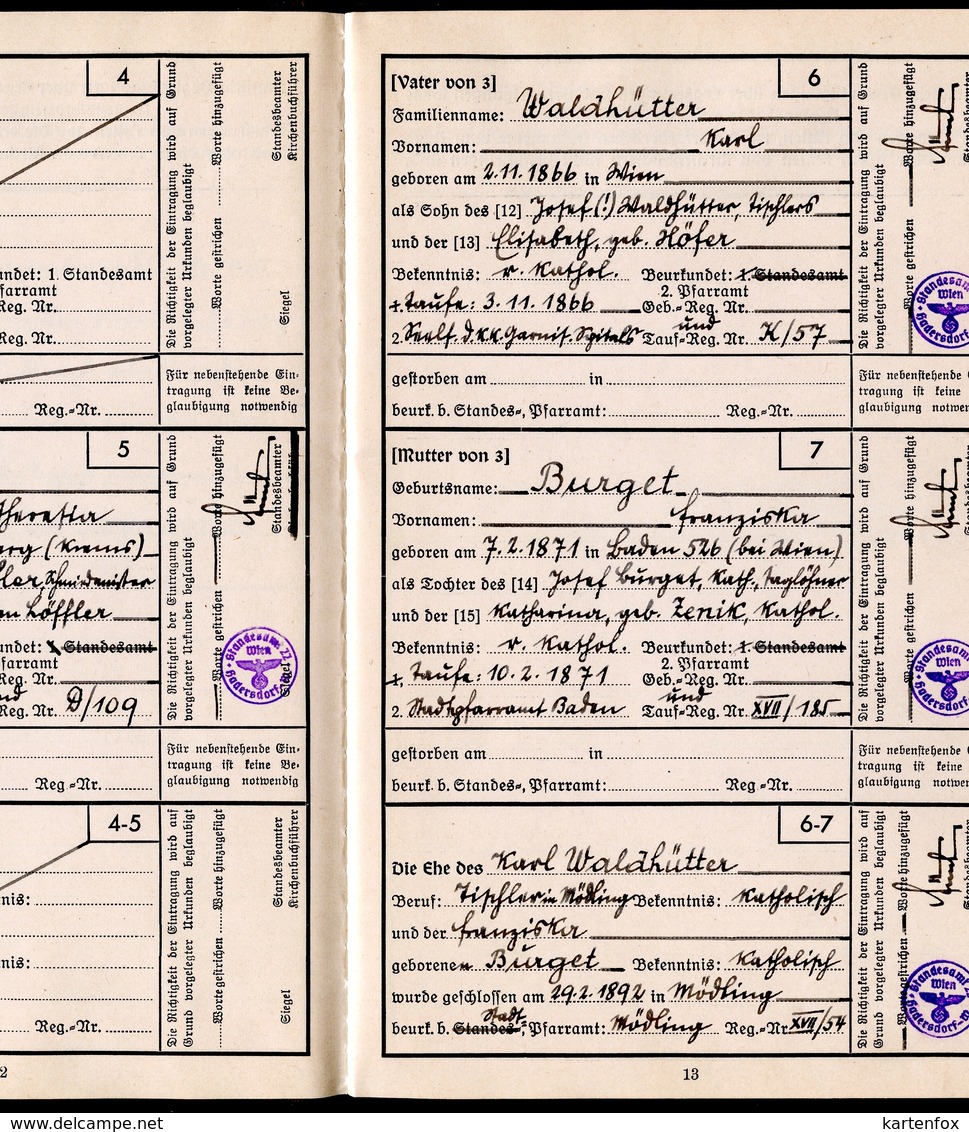 4
undet: 1. Standesamt
farramt
Reg. Nr.
Reg. Nr.
Reg.=Nr.
Die Richtigkeit der Eintragung wird auf Grund
vorgelegter Urkunden beglaubigt
Worte gestrichen Worte hinzugefügt
Siegel
Standesbeamter
Kirchenbuchführer
Für nebenstehende Ein-
tragung ist keine Be-
glaubigung notwendig
5
Theresia
erg (Krems)
ler, Schmiedmeister
Löffler
undet: 1. Standesamt
farramt
Reg. Nr.
nd
Reg. Nr. D/109
Reg.=Nr.
Die Richtigkeit der Eintragung wird auf Grund
vorgelegter Urkunden beglaubigt
Worte gestrichen Worte hinzugefügt
Standesbeamter
Siegel
Standesamt 22
Wien
Hadersdorf
Für nebenstehende Ein-
tragung ist keine Be-
glaubigung notwendig
4-5
nis:
nis:
Reg.=Nr.
Die Richtigkeit der Eintragung wird auf
Grund vorgelegter Urkunden beglaubigt
Worte gestrichen Worte hinzugefügt
Siegel
Standesbeamter
Kirchenbuchführer
2
[Vater von 3] 6
Familienname: Waldhütter
Vornamen: Karl
geboren am 2.11.1866 in Wien
als Sohn des [12] Josef (!) Waldhütter, Tischlers
und der [13] Elisabeth, geb. Höfer
Bekenntnis: r. Kathol. Beurkundet: 1. Standesamt
2. Pfarramt
+ Taufe: 3.11.1866 Geb.=Reg. Nr.
und
2. Seels. d. k.k. Garnis. Spitals Tauf=Reg. Nr. K/57
gestorben am in
beurk. b. Standes=, Pfarramt: Reg.=Nr.
Die Richtigkeit der Eintragung wird auf Grund
vorgelegter Urkunden beglaubigt
Worte gestrichen Worte hinzugefügt
Standesbeamte
Standesam
Wien
Hadersdor
Für nebenstehende E
tragung ist keine
glaubigung notwen
[Mutter von 3] 7
Geburtsname: Burget
Vornamen: Franziska
geboren am 7.2.1871 in Baden 526 (bei Wien)
als Tochter des [14] Josef Burget, kath., Taglöhner
und der [15] Katharina, geb. Zenik, Kathol.
Bekenntnis: r. Kathol. Beurkundet: 1. Standesamt
2. Pfarramt
+, Taufe: 10.2.1871 Geb.=Reg. Nr.
und
2. Stadtpfarramt Baden Tauf=Reg. Nr. XVII/185
gestorben am in
beurk. b. Standes=, Pfarramt: Reg.=Nr.
Die Richtigkeit der Eintragung wird auf Grund
vorgelegter Urkunden beglaubigt
Worte gestrichen Worte hinzugefügt
Standesam
Wien
Hadersdorf
Für nebenstehende E
tragung ist keine
glaubigung notwen
6-7
Die Ehe des Karl Waldhütter
Beruf: Tischler in Mödling Bekenntnis: Katholisch
und der Franziska
geborenen Burget Bekenntnis: Katholisch
wurde geschlossen am 29.2.1892 in Mödling
Stadt-
beurk. b. Standes=, Pfarramt: Mödling Reg.=Nr. XVII/54
Die Richtigkeit der Eintragung wird auf
Grund vorgelegter Urkunden beglaubigt
Worte gestrichen Worte hinzugefügt
Standesamt
Wien
Hadersdorf-W
13
www.delcampe.net
kartenfox